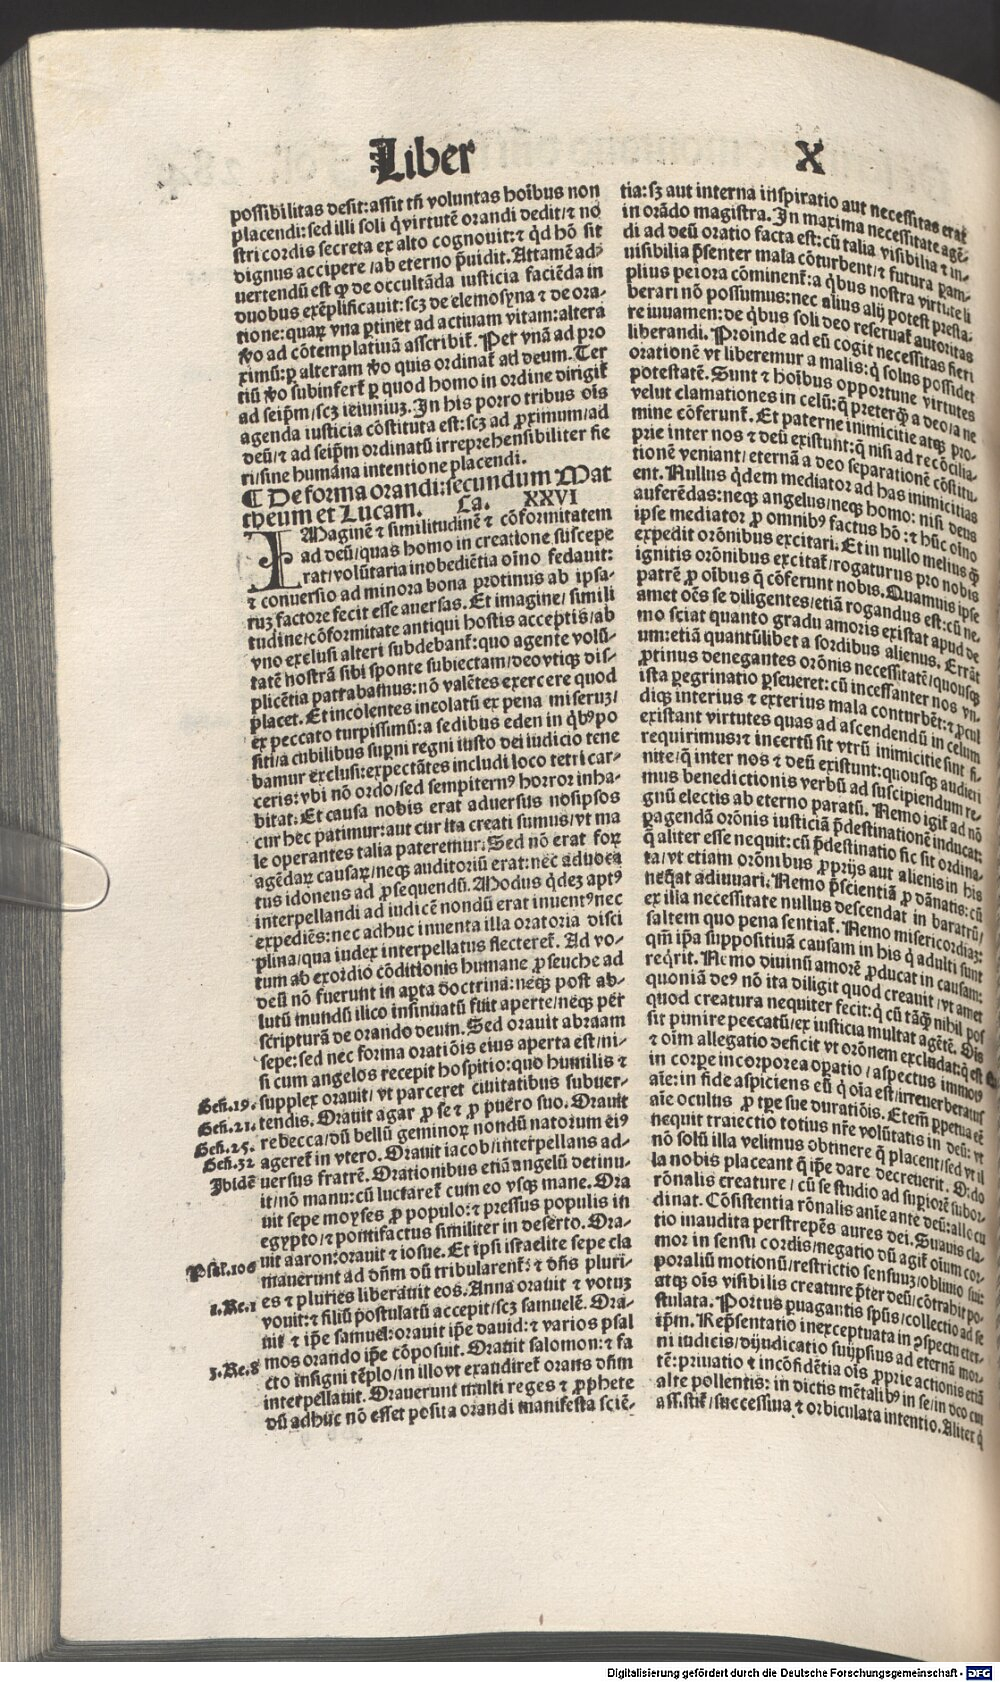 Liber X
possibilitas desit: assit tñ voluntas hoĩbus non
placendi: sed illi soli q̃ virtutẽ orandi dedit/ ⁊ nõ
stri cordis secreta ex alto cognouit: ⁊ q̃d hõ sit
dignus accipere/ ab eterno p̃uidit. Attamẽ ad-
uertendũ est qꝫ de occultãda iusticia faciẽda in
duobus exẽplificauit: scꝫ de elemosyna ⁊ de ora-
tione: quaꝝ vna ꝑtinet ad actiuam vitam: altera
ꝟo ad cõtemplatiuã asscribit̃. Per vnã ad pro
ximũ: ꝑ alteram ꝟo quis ordinat̃ ad deum. Ter
tiũ ꝟo subinfert̃ ꝑ quod homo in ordine dirigit̃
ad seip̃m/ scꝫ ieiuniuꝫ. In his porro tribus oĩs
agenda iusticia cõstituta est: scꝫ ad ꝓximum/ ad
deũ/ ⁊ ad seip̃m ordinatũ irreprehensibiliter fie
ri/ sine humãna intentione placendi.
¶ De forma orandi: secundum Mat
theum et Lucam. Ca. XXVI
IMaginẽ ⁊ similitudinẽ ⁊ cõformitatem
ad deũ/ quas homo in creatione suscepe
rat/ volũtaria inobediẽtia oĩno fedauit:
⁊ conuersio ad minora bona protinus ab ipsa-
ruꝫ factore fecit esse auersas. Et imagine/ simili
tudine/ cõformitate antiqui hostis acceptis/ ab
vno exclusi alteri subdebant̃: quo agente volũ-
tatẽ nostrã sibi sponte subiectam/ deo vtiqꝫ dis-
plicẽtia pattrabamus: nõ valẽtes exercere quod
placet. Et incolentes incolatũ ex pena miseruꝫ/
ex peccato turpissimũ: a sedibus eden in q̃bꝰ po
siti/ a cubilibus sup̃ni regni iusto dei iudicio tene
bamur exclusi: expectãtes includi loco tetri car-
ceris: vbi nõ ordo/ sed sempiternꝰ horror inha-
bitat. Et causa nobis erat aduersus nosipsos
cur hec patimur: aut cur ita creati sumus/ vt ma
le operantes talia pateremur. Sed nõ erat foꝝ
agẽdaꝝ causaꝝ/ neqꝫ auditoriũ erat: nec aduoca
tus idoneus ad ꝓsequendũ. Modus q̃deꝫ aptꝰ
interpellandi ad iudicẽ nondũ erat inuentꝰ nec
expediẽs: nec adhuc inuenta illa oratoria disci
plina/ qua iudex interpellatus flecteret̃. Ad vo-
tum ab exordio cõditionis humane ꝓseuche ad
deũ nõ fuerunt in apta doctrina: neqꝫ post ab-
lutũ mundũ ilico insinuatũ fuit aperte/ neqꝫ per
scripturã de orando deum. Sed orauit abraam
sepe: sed nec forma oratiõis eius aperta est/ ni-
si cum angelos recepit hospitio: quo humilis ⁊
Gen̄.19. supplex orauit/ vt parceret ciuitatibus subuer-
Gen̄.21. tendis. Orauit agar ꝓ se ⁊ ꝓ puero suo. Orauit
Gen̄.25. rebecca/ dũ bellũ geminoꝝ nondũ natorum eiꝰ
Gen̄.32 ageret̃ in vtero. Orauit iacob/ interpellans ad-
Ibidẽ uersus fratrẽ. Orationibus etiã angelũ detinu-
it/ nõ manu: cũ luctaret̃ cum eo vsqꝫ mane. Ora
uit sepe moyses ꝓ populo: ⁊ pressus populis in
egypto/ ⁊ pontifactus similiter in deserto. Ora-
uit aaron: orauit ⁊ iosue. Et ipsi israelite sepe cla
Psal.106 mauerunt ad dñm dũ tribularent̃: ⁊ dñs pluri-
es ⁊ pluries liberauit eos. Anna orauit ⁊ votuꝫ
1.Re.1 vouit: ⁊ filiũ postulatũ accepit/ scꝫ samuelẽ. Ora-
uit ⁊ ip̃e samuel: orauit ip̃e dauid: ⁊ varios psal
mos orando ip̃e cõposuit. Orauit salomon: ⁊ fa
3.Re.8 cto insigni tẽplo/ in illo vt exaudiret̃ orans dñm
interpellauit. Orauerunt multi reges ⁊ ꝓphete
dũ adhuc nõ esset posita orandi manifesta sciẽ-
tia: sꝫ aut interna inspiratio aut necessitas erat
in orãdo magistra. In maxima necessitate agẽ-
di ad deũ oratio facta est: cũ talia visibilia ⁊ in-
uisibilia p̃senter mala cõturbent/ ⁊ futura ꝑam-
plius peiora cõminent̃: a q̃bus nostra virtute li
berari nõ possumus: nec alius alij potest presta-
re iuuamen: de q̃bus soli deo reseruat̃ autoritas
liberandi. Proinde ad eũ cogit necessitas fieri
orationẽ vt liberemur a malis: q̃ solus possidet
potestatẽ. Sunt ⁊ hoĩbus opportune virtutes
velut clamationes in celũ: q̃ preterq̃ a deo/ a ne
mine cõferunt̃. Et paterne inimicitie atqꝫ pro-
prie inter nos ⁊ deũ existunt: q̃ nisi ad recõcilia-
tionẽ veniant/ eternã a deo separationẽ cõstitu-
ent. Nullus q̃dem mediator ad has inimicitias
auferẽdas: neqꝫ angelus/ neqꝫ homo: nisi deus
ipse mediator ꝓ omnibꝰ factus hõ: ⁊ hũc oĩno
expedit orõnibus excitari. Et in nullo melius q̃
ignitis orõnibus excitat̃/ rogaturus pro nobis
patrẽ ꝓ oĩbus q̃ cõferunt nobis. Quamuis ipse
amet oẽs se diligentes/ etiã rogandus est: cũ ne-
mo sciat quanto gradu amoris existat apud de
um: etiã quantũlibet a sordibus alienus. Errãt
ꝓtinus denegantes orõnis necessitatẽ/ quousqꝫ
ista ꝑegrinatio ꝑseueret: cũ incessanter nos vn-
diqꝫ interius ⁊ exterius mala conturbẽt: ⁊ ꝓcul
existant virtutes quas ad ascendendũ in celum
requirimus: ⁊ incertũ sit vtrũ inimicitie sint fi-
nite/ q̃ inter nos ⁊ deũ existunt: quousqꝫ audieri
mus benedictionis verbũ ad suscipiendum re-
gnũ electis ab eterno paratũ. Nemo igit̃ ad nõ
ꝑagendã orõnis iusticiã p̃destinationẽ inducat:
q̃ aliter esse nequit: cũ p̃destinatio sic sit ordina-
ta/ vt etiam orõnibus ꝓprijs aut alienis in his
neq̃at adiuuari. Nemo p̃scientiã ꝓ dãnatis: cũ
ex illa necessitate nullus descendat in baratrũ/
saltem quo pena sentiat̃. Nemo misericordiaꝫ:
qm̃ ip̃a suppositiuã causam in his q̃ adulti sunt
req̃rit. Nemo diuinũ amorẽ ꝓducat in causam:
quoniã deꝰ nõ ita diligit quod creauit/ vt amet
quod creatura nequiter fecit: q̃ cũ tãqꝫ nihil pos
sit punire peccatũ/ ex iusticia multat agẽtẽ. Dis
⁊ oĩm allegatio deficit vt orõnem excludat: q̃ est
in corpe incorporea oꝑatio/ aspectus immotꝰ
aĩe: in fide aspiciens eũ q̃ oĩa est/ irreuerberatus
aĩe oculus ꝓ tp̃e sue duratiõis. Etem̃ ꝑpetua eẽ
nequit traiectio totius nr̃e volũtatis in deũ: vt
nõ solũ illa velimus obtinere q̃ placent/ sed vt il
la nobis placeant q̃ ip̃e dare decreuerit. O: do
rõnalis creature/ cũ se studio ad sup̃iorẽ subor-
dinat. Cõsistentia rõnalis aĩe ante deũ: allocu
tio inaudita perstrepẽs aures dei. Suauis cla-
mor in sensu cordis/ negatio dũ agit̃ oĩum cor-
poraliũ motionũ/ restrictio sensuuꝫ/ obliuio sui:
atqꝫ oĩs visibilis creature p̃ter deũ/ cõtrabit po-
stulata. Portus ꝑuagantis sp̃us/ collectio ad se
ip̃m. Rep̃sentatio inexceptuata in ꝯspectu eter-
ni iudicis/ dijudicatio suijpsius ad eternã mor-
tẽ: priuatio ⁊ incõfidẽtia oĩs ꝓprie actionis etiã
alte pollentis: in dictis mẽtalibꝰ in se/ in deo cui
assistit̃/ successiua ⁊ orbiculata intentio. Aliter q̃
Digitalisierung gefördert durch die Deutsche Forschungsgemeinschaft - DFG